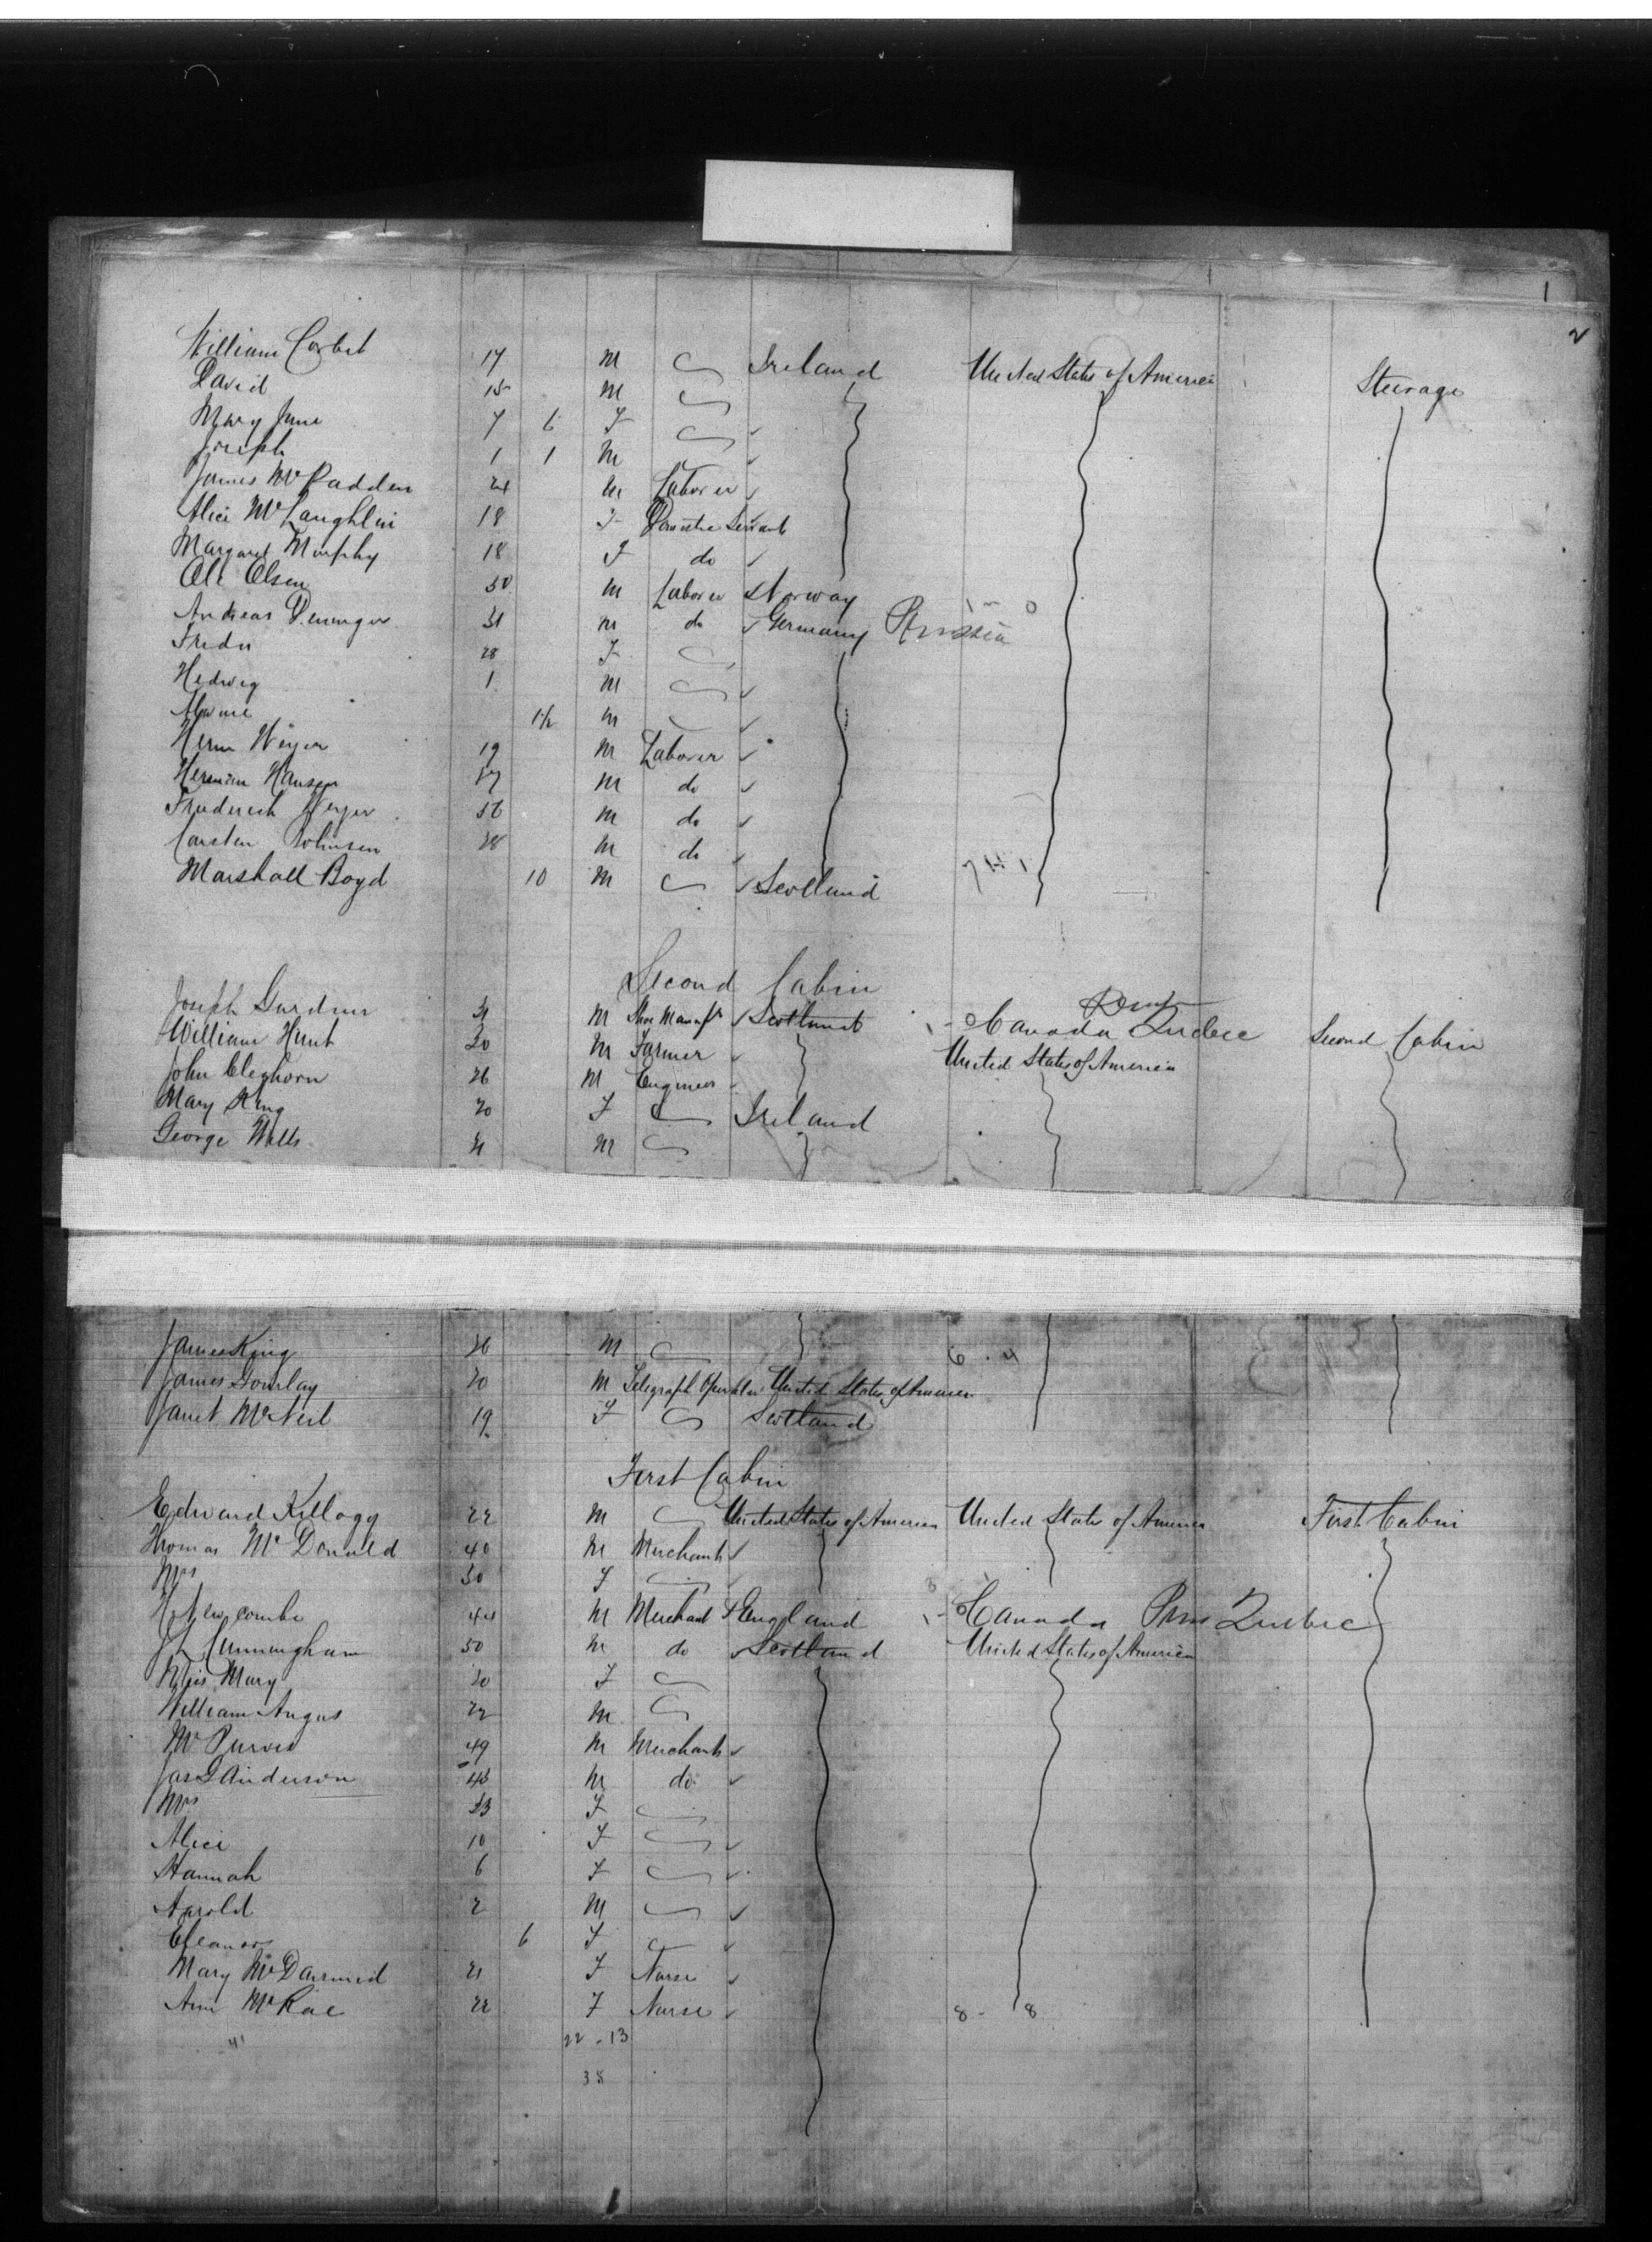 2
William Corbet 17 M Ireland United States of America Steerage
David 15 M
Mary Jane 7 6 F
Joseph 1 1 M
James McFadden 24 M Laborer
Alice McLaughlin 18 F Domestic Servant
Margaret Murphy 18 F do
Ole Olsen 30 M Laborer Norway
Andreas 31 M do Germany Prussia
28 F
Hedwig 1 M
1/2 M
Herm Weyer 19 M Laborer
Herman Hansen 17 M do
Frederich 56 M do
Carsten Johnsen 28 M do
Marshall Boyd 10 M Scotland
Second Cabin
Joseph Gardner 31 M Shoe Manuftr Scotland Canada Quebec Second Cabin
William Hunt 20 M Farmer United States of America
John Cleghorn 26 M Engineer
Mary King 20 F Ireland
George Watts 21 M
James King 26 M 6 . 4
James Gourlay 20 M Telegraph Operator United States of America
Janet McNeil 19 F Scotland
First Cabin
Edward Kellogg 22 M United States of America United States of America First Cabin
Thomas McDonald 40 M Merchant
Mrs 30 F
H Newcombe 44 M Merchant England Canada Quebec
Cunningham 50 M do Scotland United States of America
Miss Mary 20 F
William Angus 22 M
Mr Purves 49 M Merchant
Jas G Anderson 43 M do
Mrs 33 F
Alice 10 F
Hannah 6 F
Harold 2 M
Eleanor 6 F
Mary McDairmid 21 F Nurse
Ann McRae 22 F Nurse 8 - 8
41 22 - 13
38